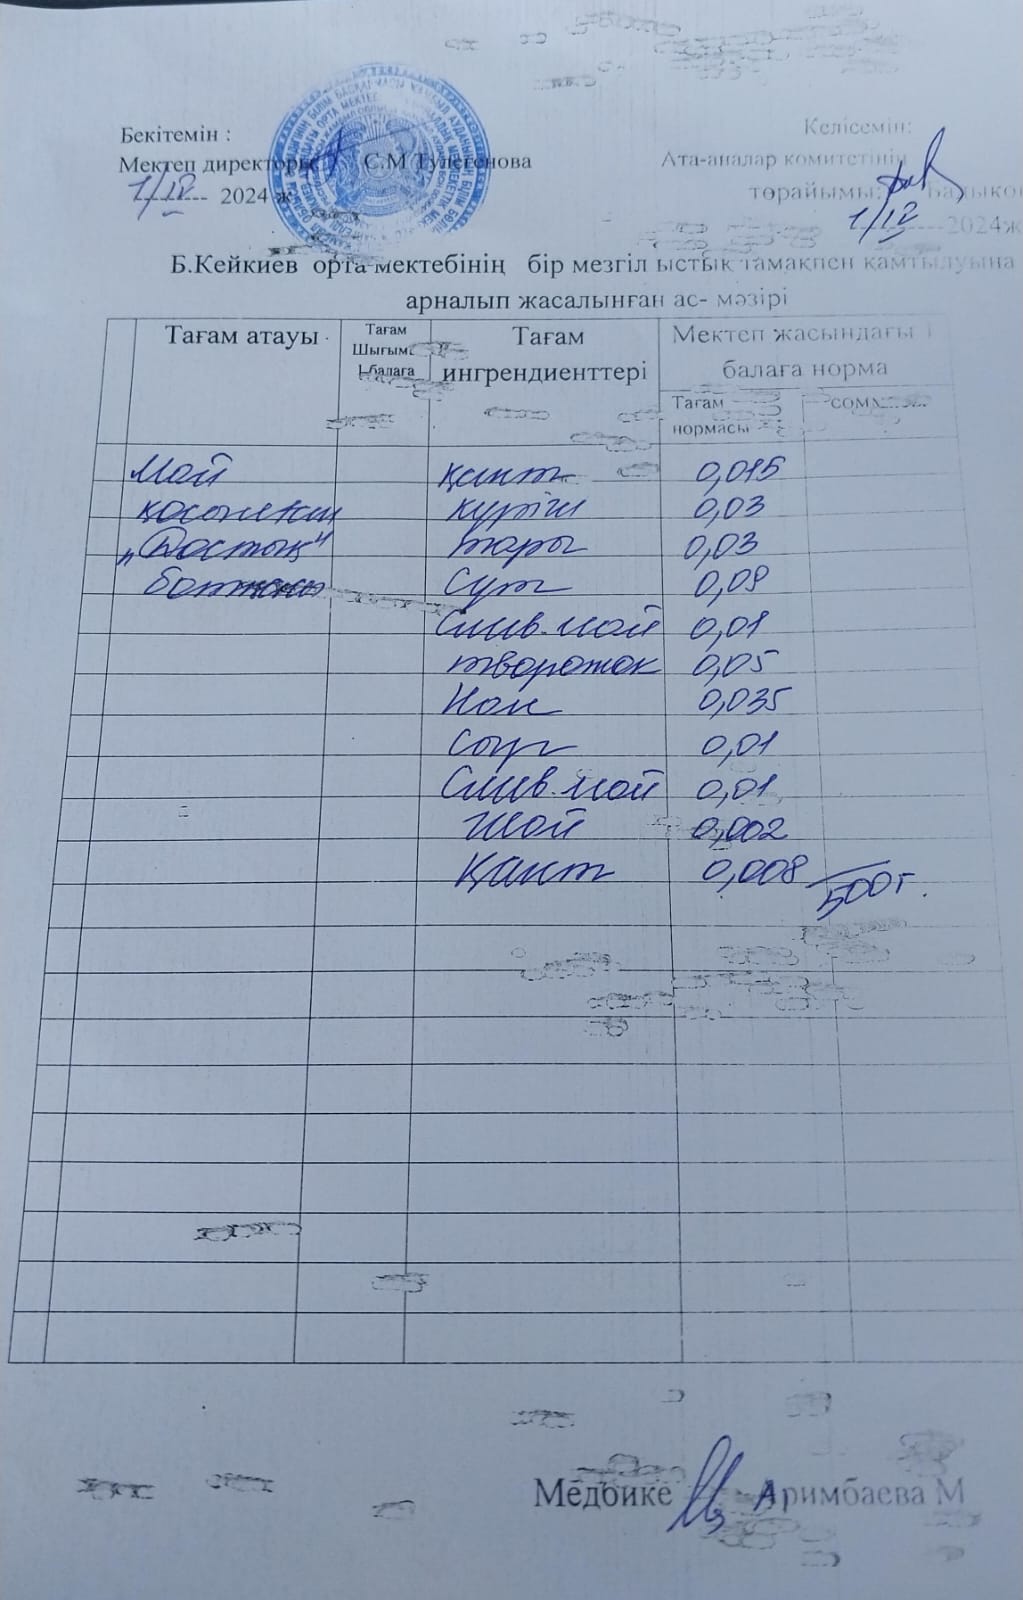 Бекітемін :
Келісемін:
Мектеп директоры С.М Тулегенова
Ата-аналар комитетінің
1/IV 2024 ж
төрайымы:
1/IV 2024ж
Б.Кейкиев орта мектебінің бір мезгіл ыстық тамақпен қамтылуына
арналып жасалынған ас- мәзірі
Тағам атауы
Тағам Шығымы 1 балаға
Тағам ингрендиенттері
Мектеп жасындағы 1 балаға норма
Тағам нормасы
сомма
Май қант 0,015
қосылған күріш 0,03
"Достық" тары 0,03
ботқасы Сүт 0,09
Слив. май 0,01
творожок 0,05
Нан 0,035
Сыр 0,01
Слив. май 0,01
Шай 0,002
Қант 0,008
500г.
Медбике Аримбаева М